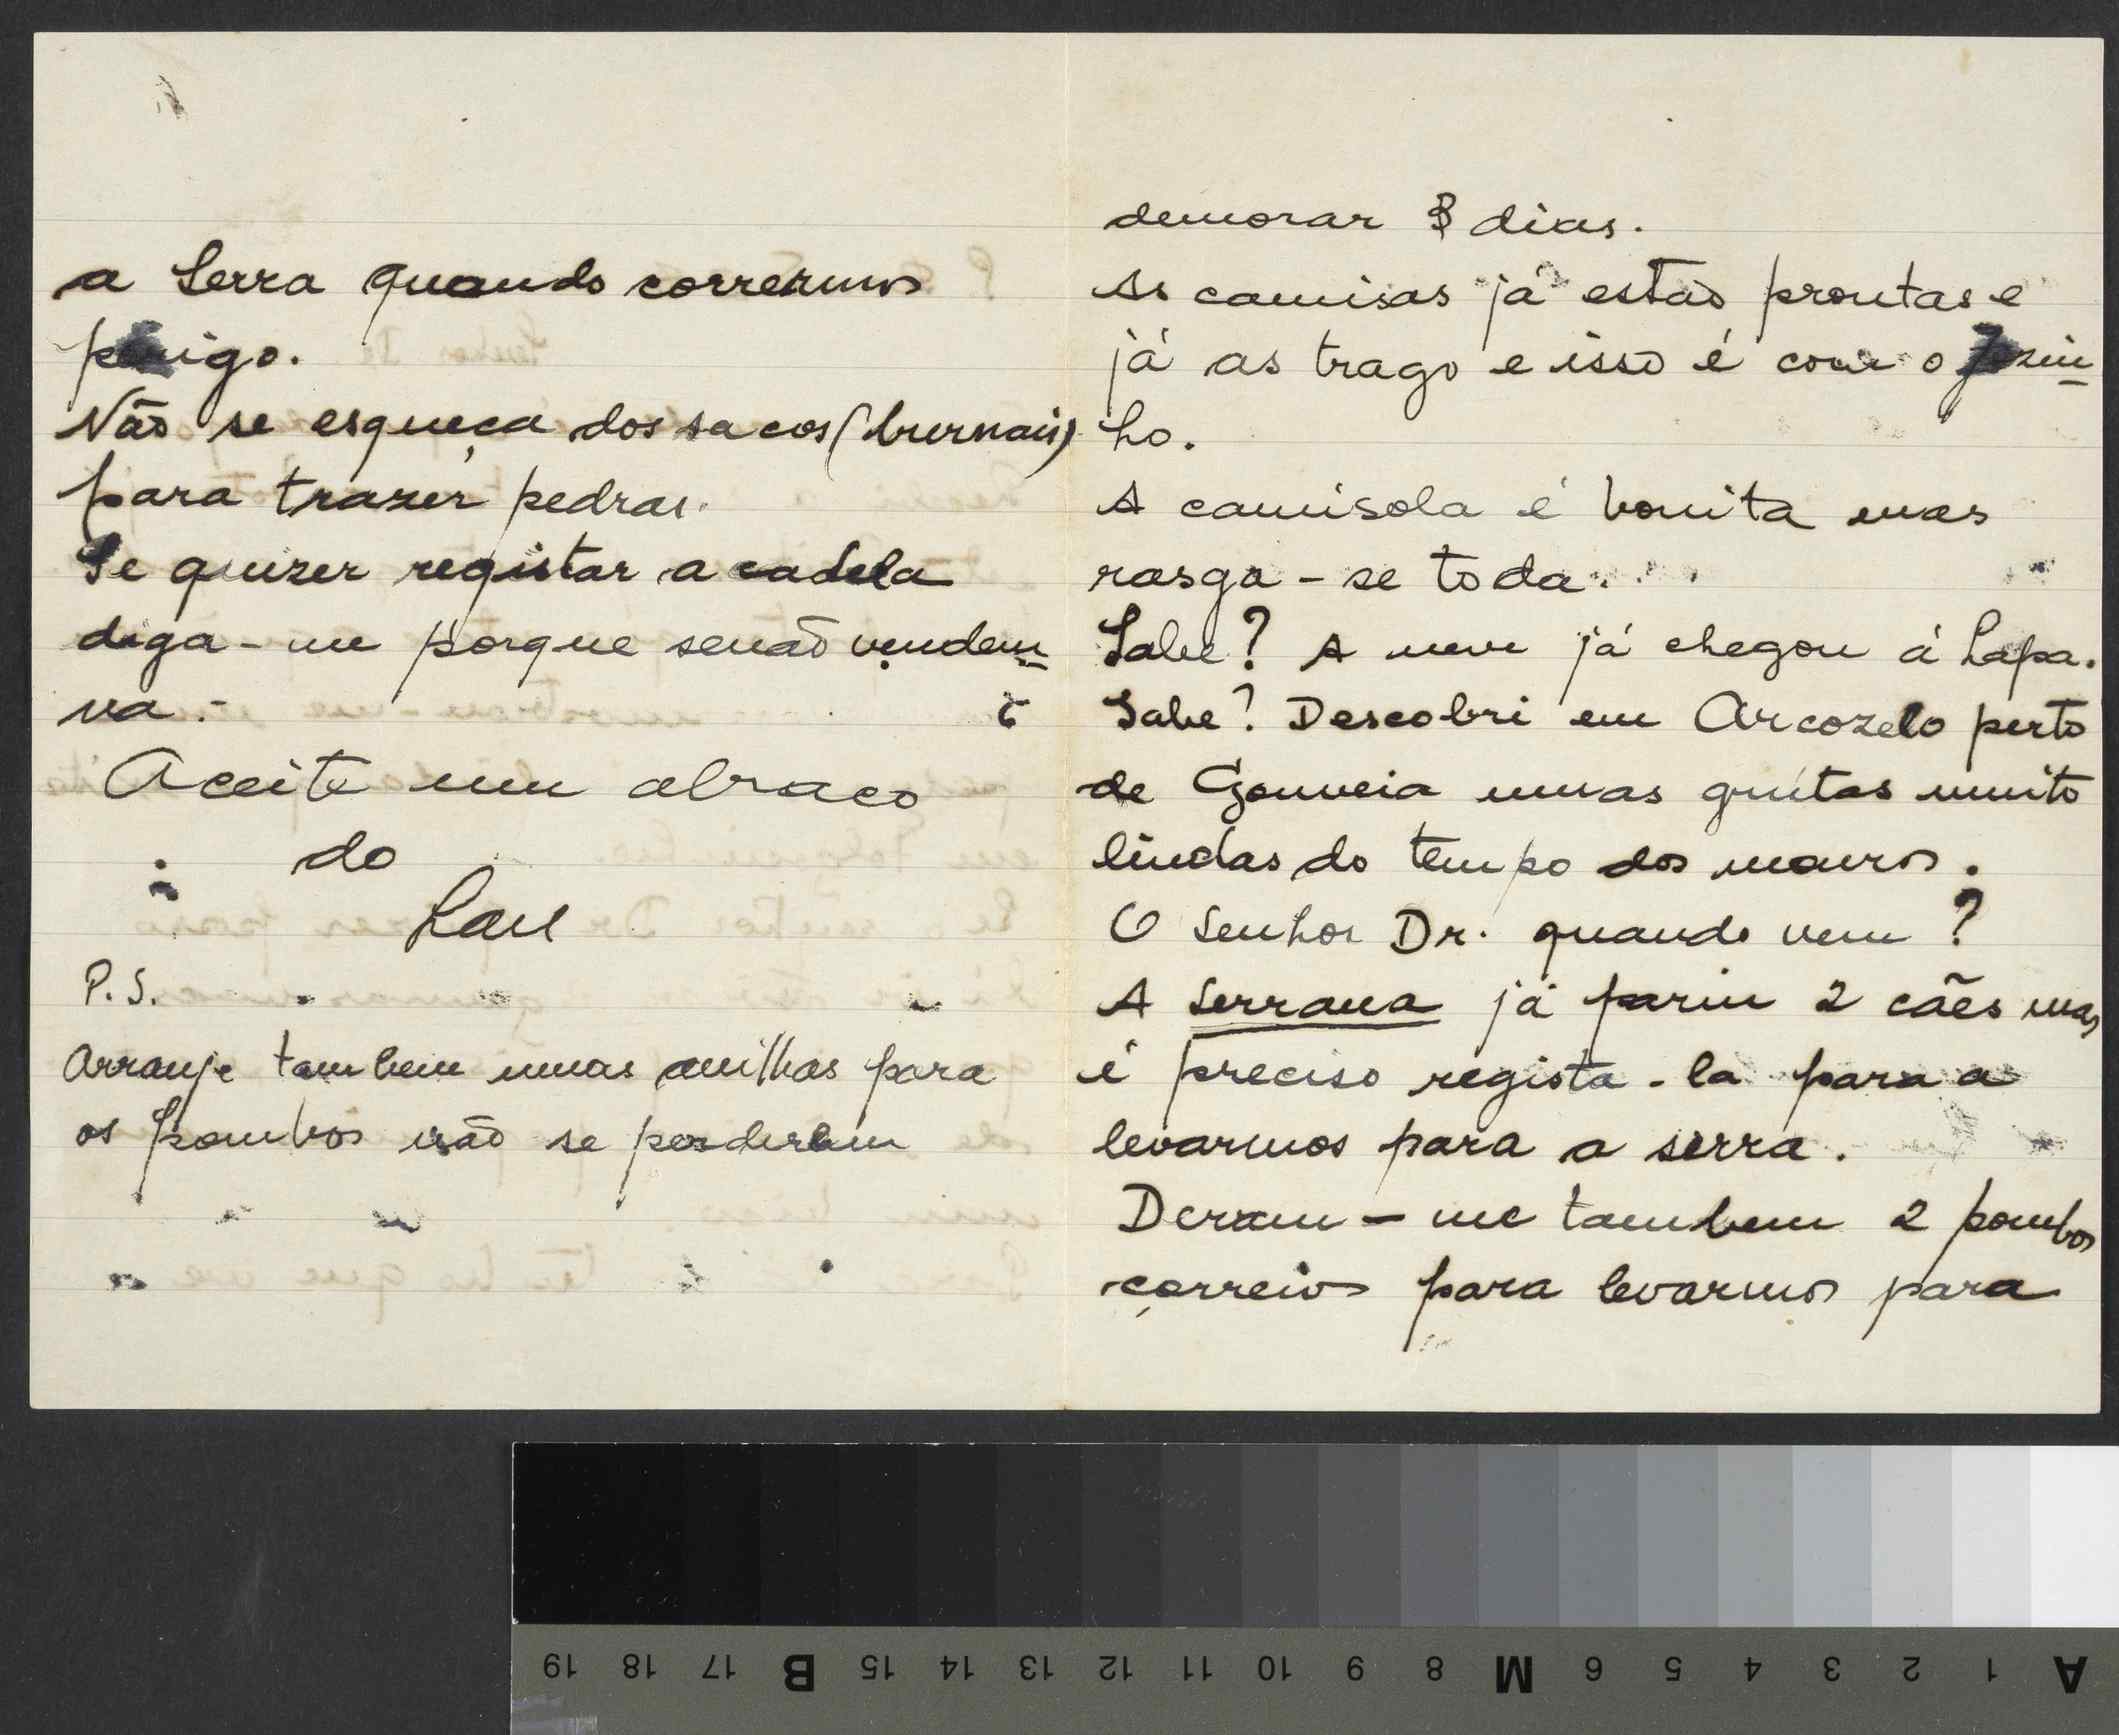 a Serra quando corrermos
perigo.
Não se esqueça dos sacos (burnais)
para trazer pedras.
Se quizer registar a cadela
diga-me porque senão vendem-
na.-
Aceite um abraço
do
P.S.
Arranje tambem umas anilhas para
os pombos não se perderem
demorar 8 dias.
As camisas já estão prontas e
já as trago e isso é com o Zezin-
ho.
A camisola é bonita mas
rasga-se toda.
Sabe? A neve já chegou á Lapa.
Sabe? Descobri em Arcozelo perto
de Gouveia umas grutas muito
lindas do tempo dos mouros.
O Senhor Dr. quando vem?
A Serrana já pariu 2 cães mas
é preciso regista-la para a
levarmos para a serra.
Deram-me tambem 2 pombos
correios para levarmos para
A 1 2 3 4 5 6 M 8 9 10 11 12 13 14 15 B 17 18 19